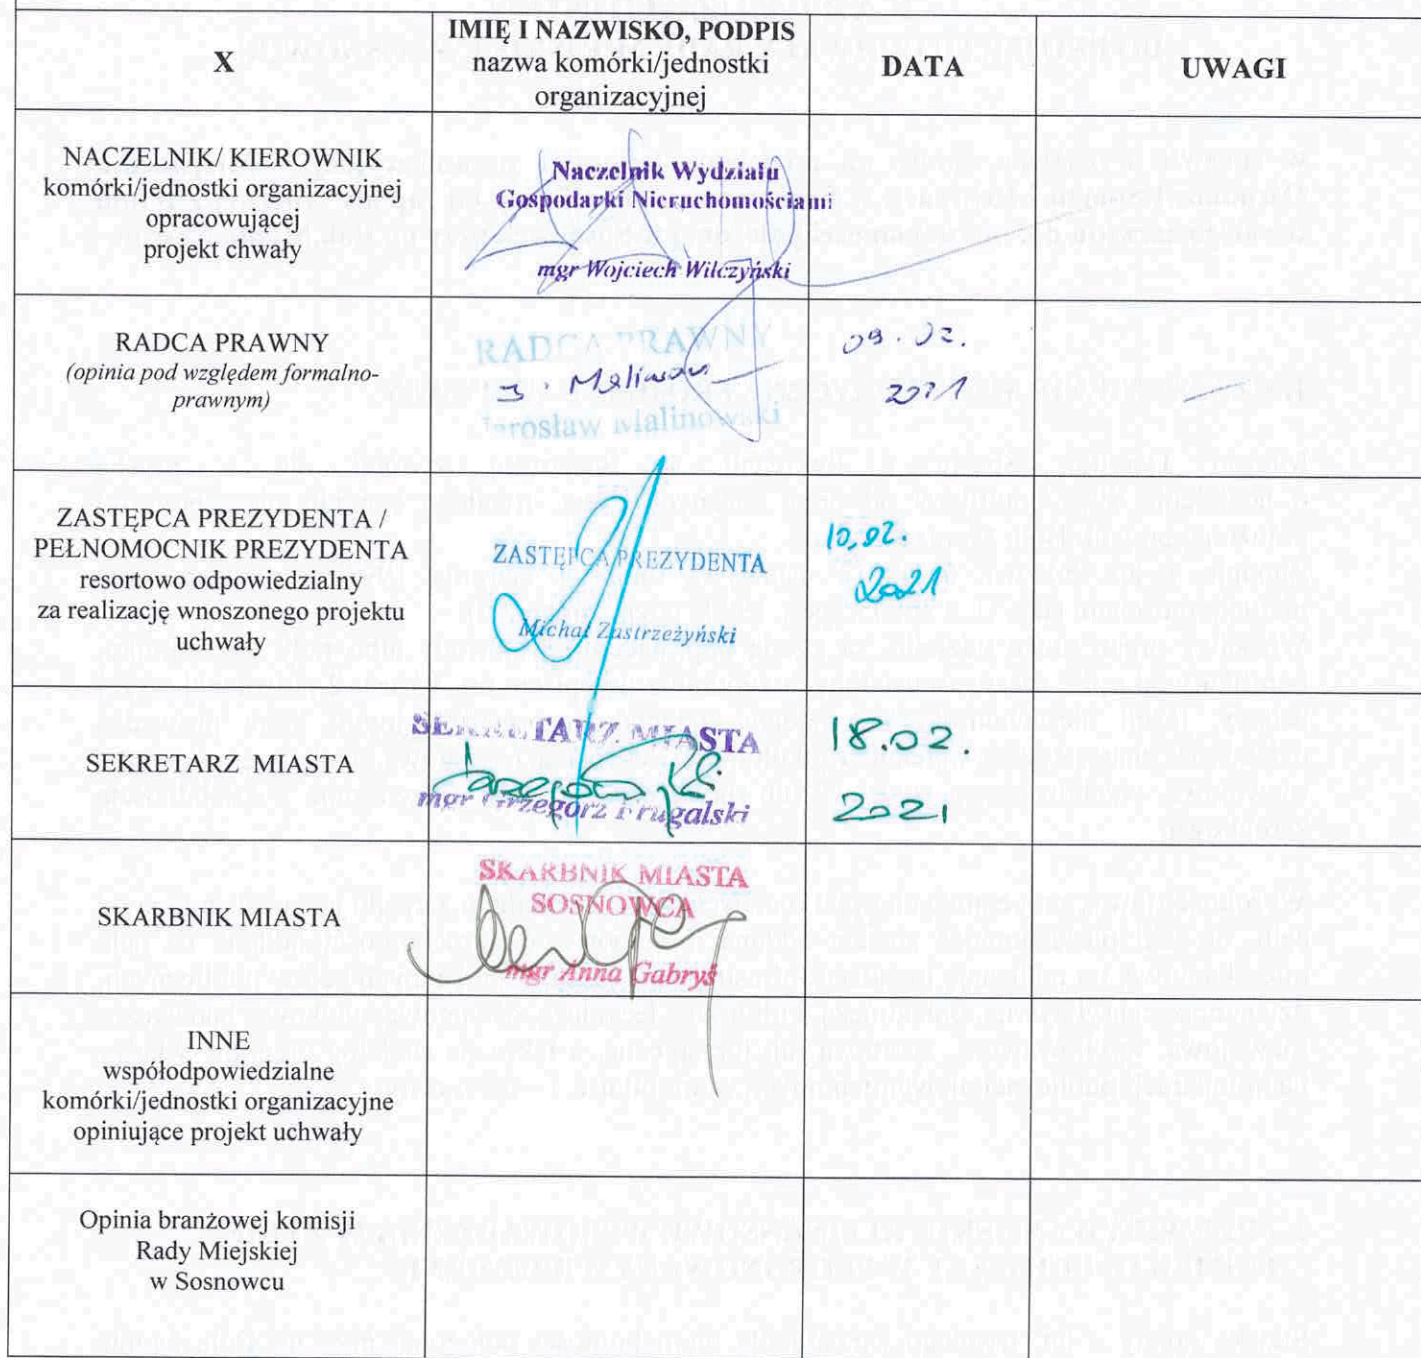 X
IMIĘ I NAZWISKO, PODPIS
nazwa komórki/jednostki
organizacyjnej
DATA
UWAGI
NACZELNIK/ KIEROWNIK
komórki/jednostki organizacyjnej
opracowującej
projekt chwały
Naczelnik Wydziału
Gospodarki Nieruchomościami
mgr Wojciech Wilczyński
RADCA PRAWNY
(opinia pod względem formalno-
prawnym)
RADCA PRAWNY
J. Malinow
Jarosław Malinowski
09.02.
2021
ZASTĘPCA PREZYDENTA /
PEŁNOMOCNIK PREZYDENTA
resortowo odpowiedzialny
za realizację wnoszonego projektu
uchwały
ZASTĘPCA PREZYDENTA
Michał Zastrzeżyński
10.02.
2021
SEKRETARZ MIASTA
SEKRETARZ MIASTA
mgr Grzegorz Frugalski
18.02.
2021
SKARBNIK MIASTA
SKARBNIK MIASTA
SOSNOWCA
mgr Anna Gabryś
INNE
współodpowiedzialne
komórki/jednostki organizacyjne
opiniujące projekt uchwały
Opinia branżowej komisji
Rady Miejskiej
w Sosnowcu